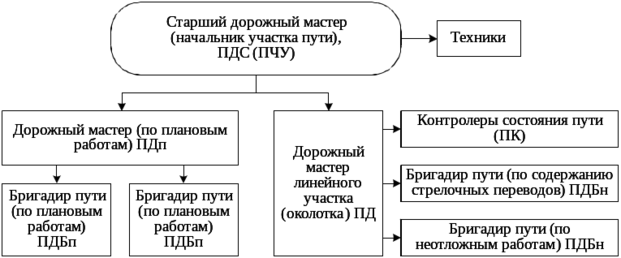 Старший дорожный мастер
(начальник участка пути),
ПДС (ПЧУ)
Техники
Дорожный мастер (по плановым
работам) ПДп
Бригадир пути
(по плановым
работам)
ПДБп
Бригадир пути
(по плановым
работам)
ПДБп
Дорожный
мастер
линейного
участка
(околотка) ПД
Контролеры состояния пути
(ПК)
Бригадир пути (по содержанию
стрелочных переводов) ПДБн
Бригадир пути (по
неотложным работам) ПДБн